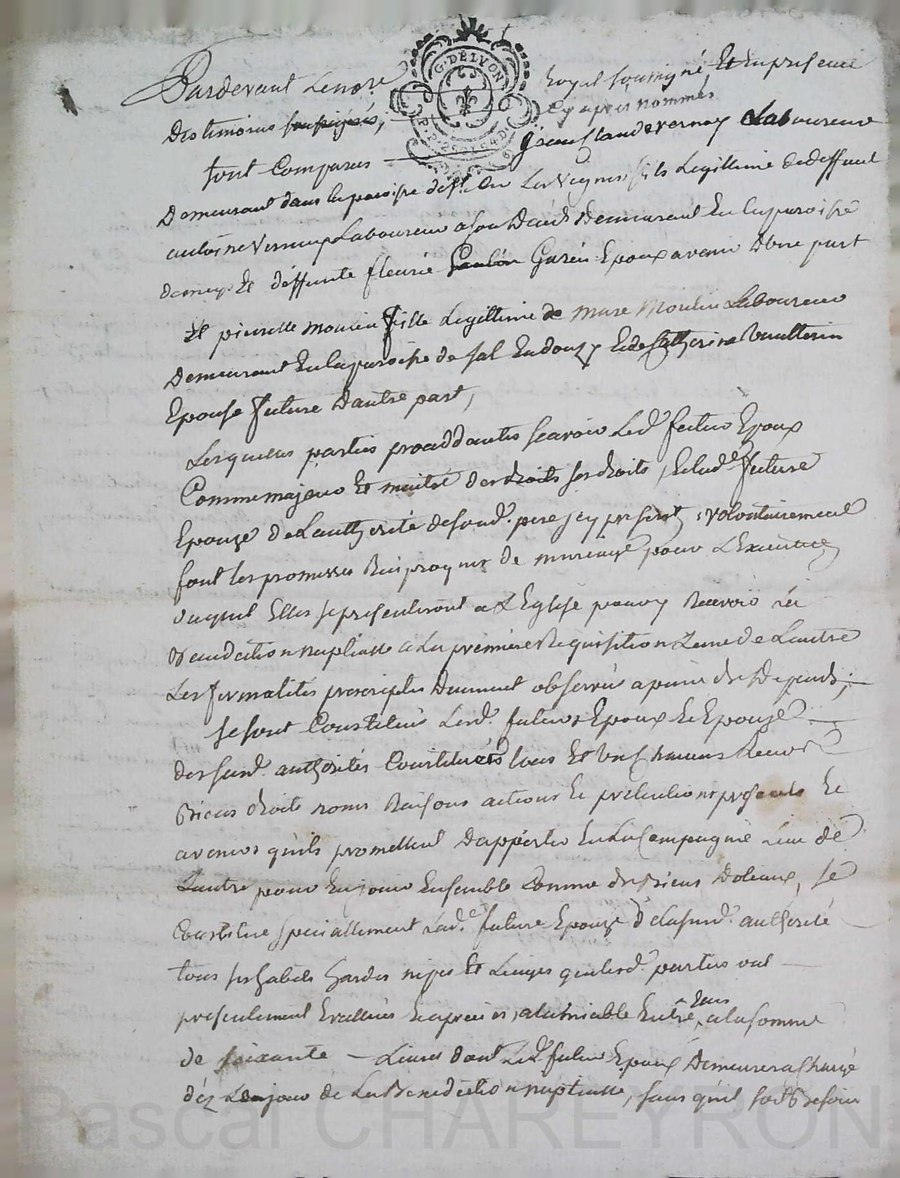 G. DE LYON
Pardevant Lenore royal soussigné Et En presence
Des temoins soussignés, Cy apres nommés
sont Comparus Jean Claude vernay Laboureur
Demeurant dans la paroisse de st Les vignes fils Legitime de deffunt
antoine vernay Laboureur a son Deceds Demeurant En la paroisse
de Et deffunte fleurie Garin Epoux avenir Dune part
Et pierrette moulin fille Legittime de Marc Moulin Laboureur
Demeurant En la paroisse de sal En donzy Et de Catherine
Epouse future Dautre part,
Lesquelles parties proceddantes scavoir Led. futur Epoux
Comme majeur Et maitre des droits ses droits, Et lade future
Epouze De Lauthorité de sond. pere jcy present, volontairement
font les promesses Reciproques de mariage pour L'Execution
duquel Elles se presenteront a L'Eglise pour y Recevoir La
Benediction nuptialle a La premiere Requisition Lune de Lautre
Les formalités prescriptes Duement observées a peine de Depends;
se sont Constitués Lesd. futurs Epoux Et Epouse
des susd. authorités Constitués tous Et un chacuns Leurs
Biens droits noms Raisons actions Et pretentions presents Et
avenirs qu'ils promettent D'apporter En La Compagnie Lun de
Lautre pour En jouir Ensemble Comme de Biens Dotaux, se
Constitue speciallement Lade future Epouze De la susd. authorité
tous ses habits hardes nipes Et Linges que lesd. parties ont
presentement Evallués Et apreciés, alamiable Entre Eux a la somme
de soixante Livres dont Led. futur Epoux Demeurera chargé
dèz Le jour de La Benediction nuptialle, sans qu'il soit Besoin
Pascal CHAREYRON